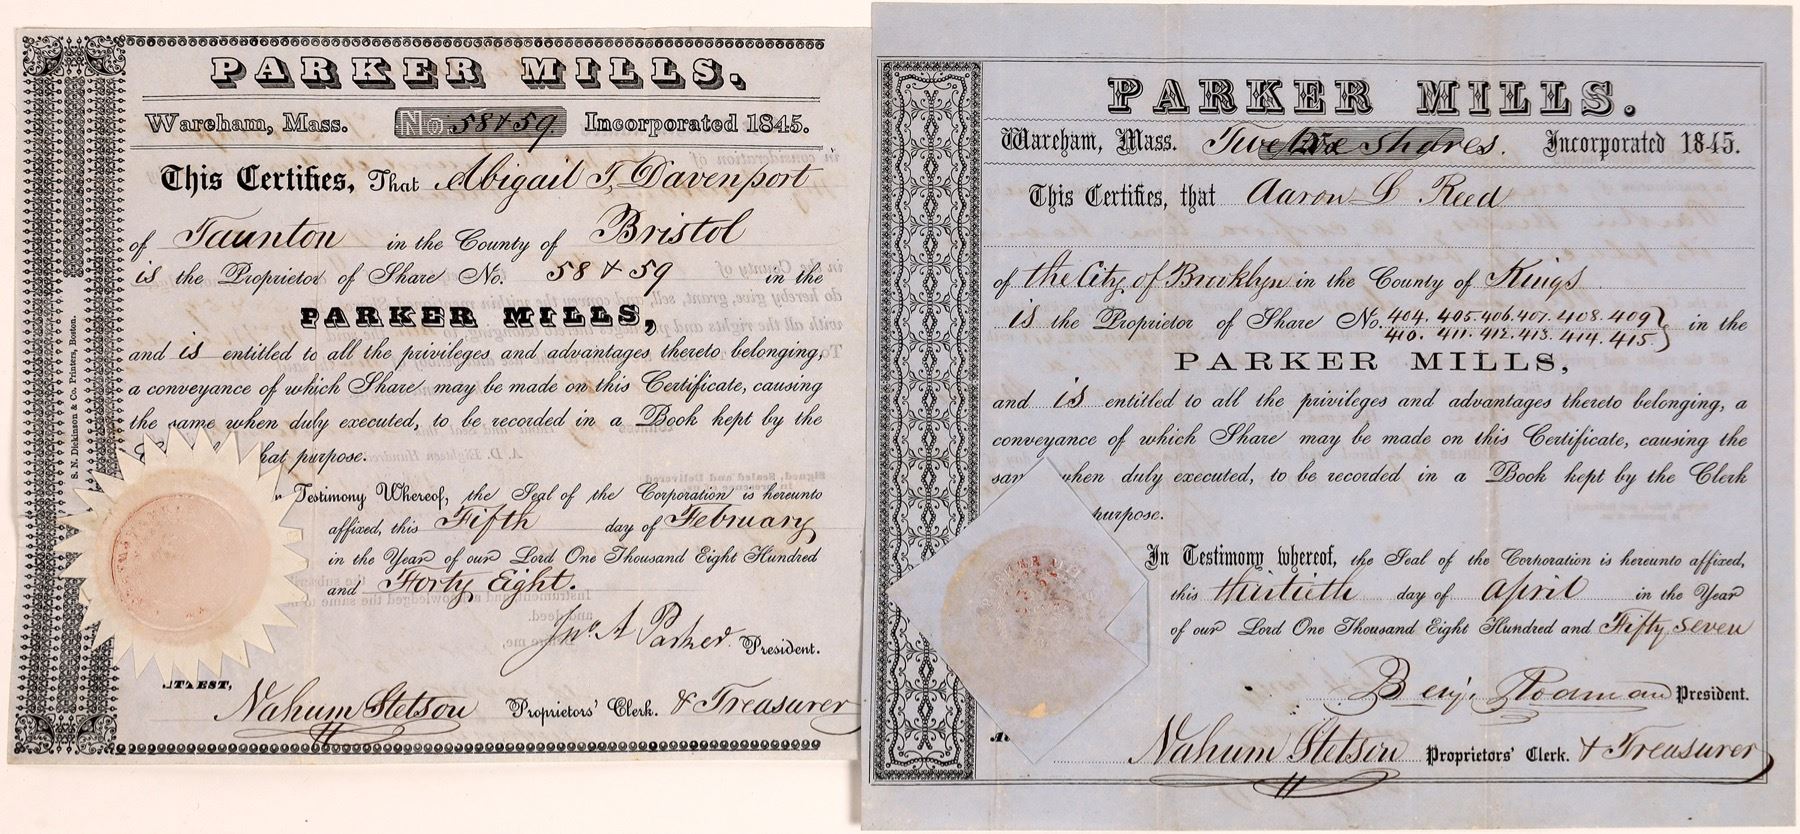 PARKER MILLS.
Wareham, Mass. No. 58 & 59. Incorporated 1845.
This Certifies, That Abigail T. Davenport
of Taunton in the County of Bristol
is the Proprietor of Share No. 58 & 59 in the
PARKER MILLS,
and is entitled to all the privileges and advantages thereto belonging,
a conveyance of which Share may be made on this Certificate, causing
the same when duly executed, to be recorded in a Book kept by the
hat purpose.
Testimony Whereof, the Seal of the Corporation is hereunto
affixed, this Fifth day of February
in the Year of our Lord One Thousand Eight Hundred
and Forty Eight.
Jno. A Parker President.
ATTEST,
Nahum Stetson Proprietors' Clerk. & Treasurer
S. N. Dickinson & Co. Printers, Boston.
PARKER MILLS.
Wareham, Mass. Twelve Shares. Incorporated 1845.
This Certifies, that Aaron L Reed
of the City of Brooklyn in the County of Kings
is the Proprietor of Share No. 404. 405. 406. 407. 408. 409
410. 411. 412. 413. 414. 415. } in the
PARKER MILLS,
and is entitled to all the privileges and advantages thereto belonging, a
conveyance of which Share may be made on this Certificate, causing the
when duly executed, to be recorded in a Book kept by the Clerk
purpose.
In Testimony whereof, the Seal of the Corporation is hereunto affixed,
this thirtieth day of April in the Year
of our Lord One Thousand Eight Hundred and Fifty Seven
Benj. Rodman President.
Nahum Stetson Proprietors' Clerk. & Treasurer